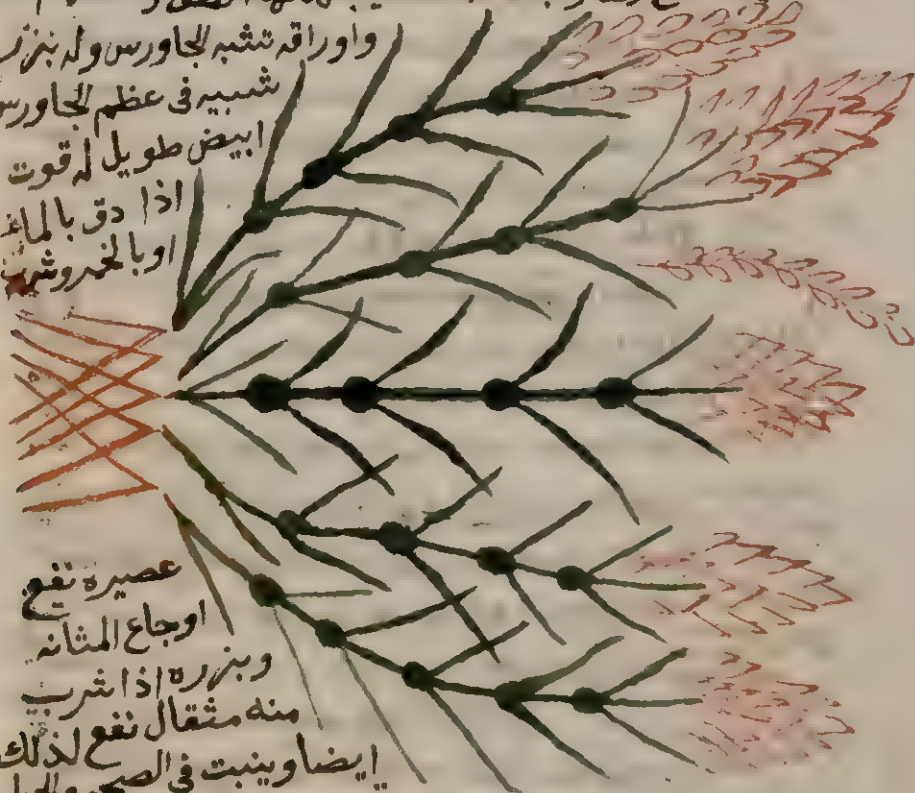 واوراقه تشبه الجاورس وله بنزر
شبيه فى عظم الجاورس
ابيض طويل له قوت
اذا دق بالماء
اوبالخمر وشرب
عصيره نفع
اوجاع المثانه
وبنزره اذا شرب
منه مثقال نفع لذلك
ايضا وينبت فى